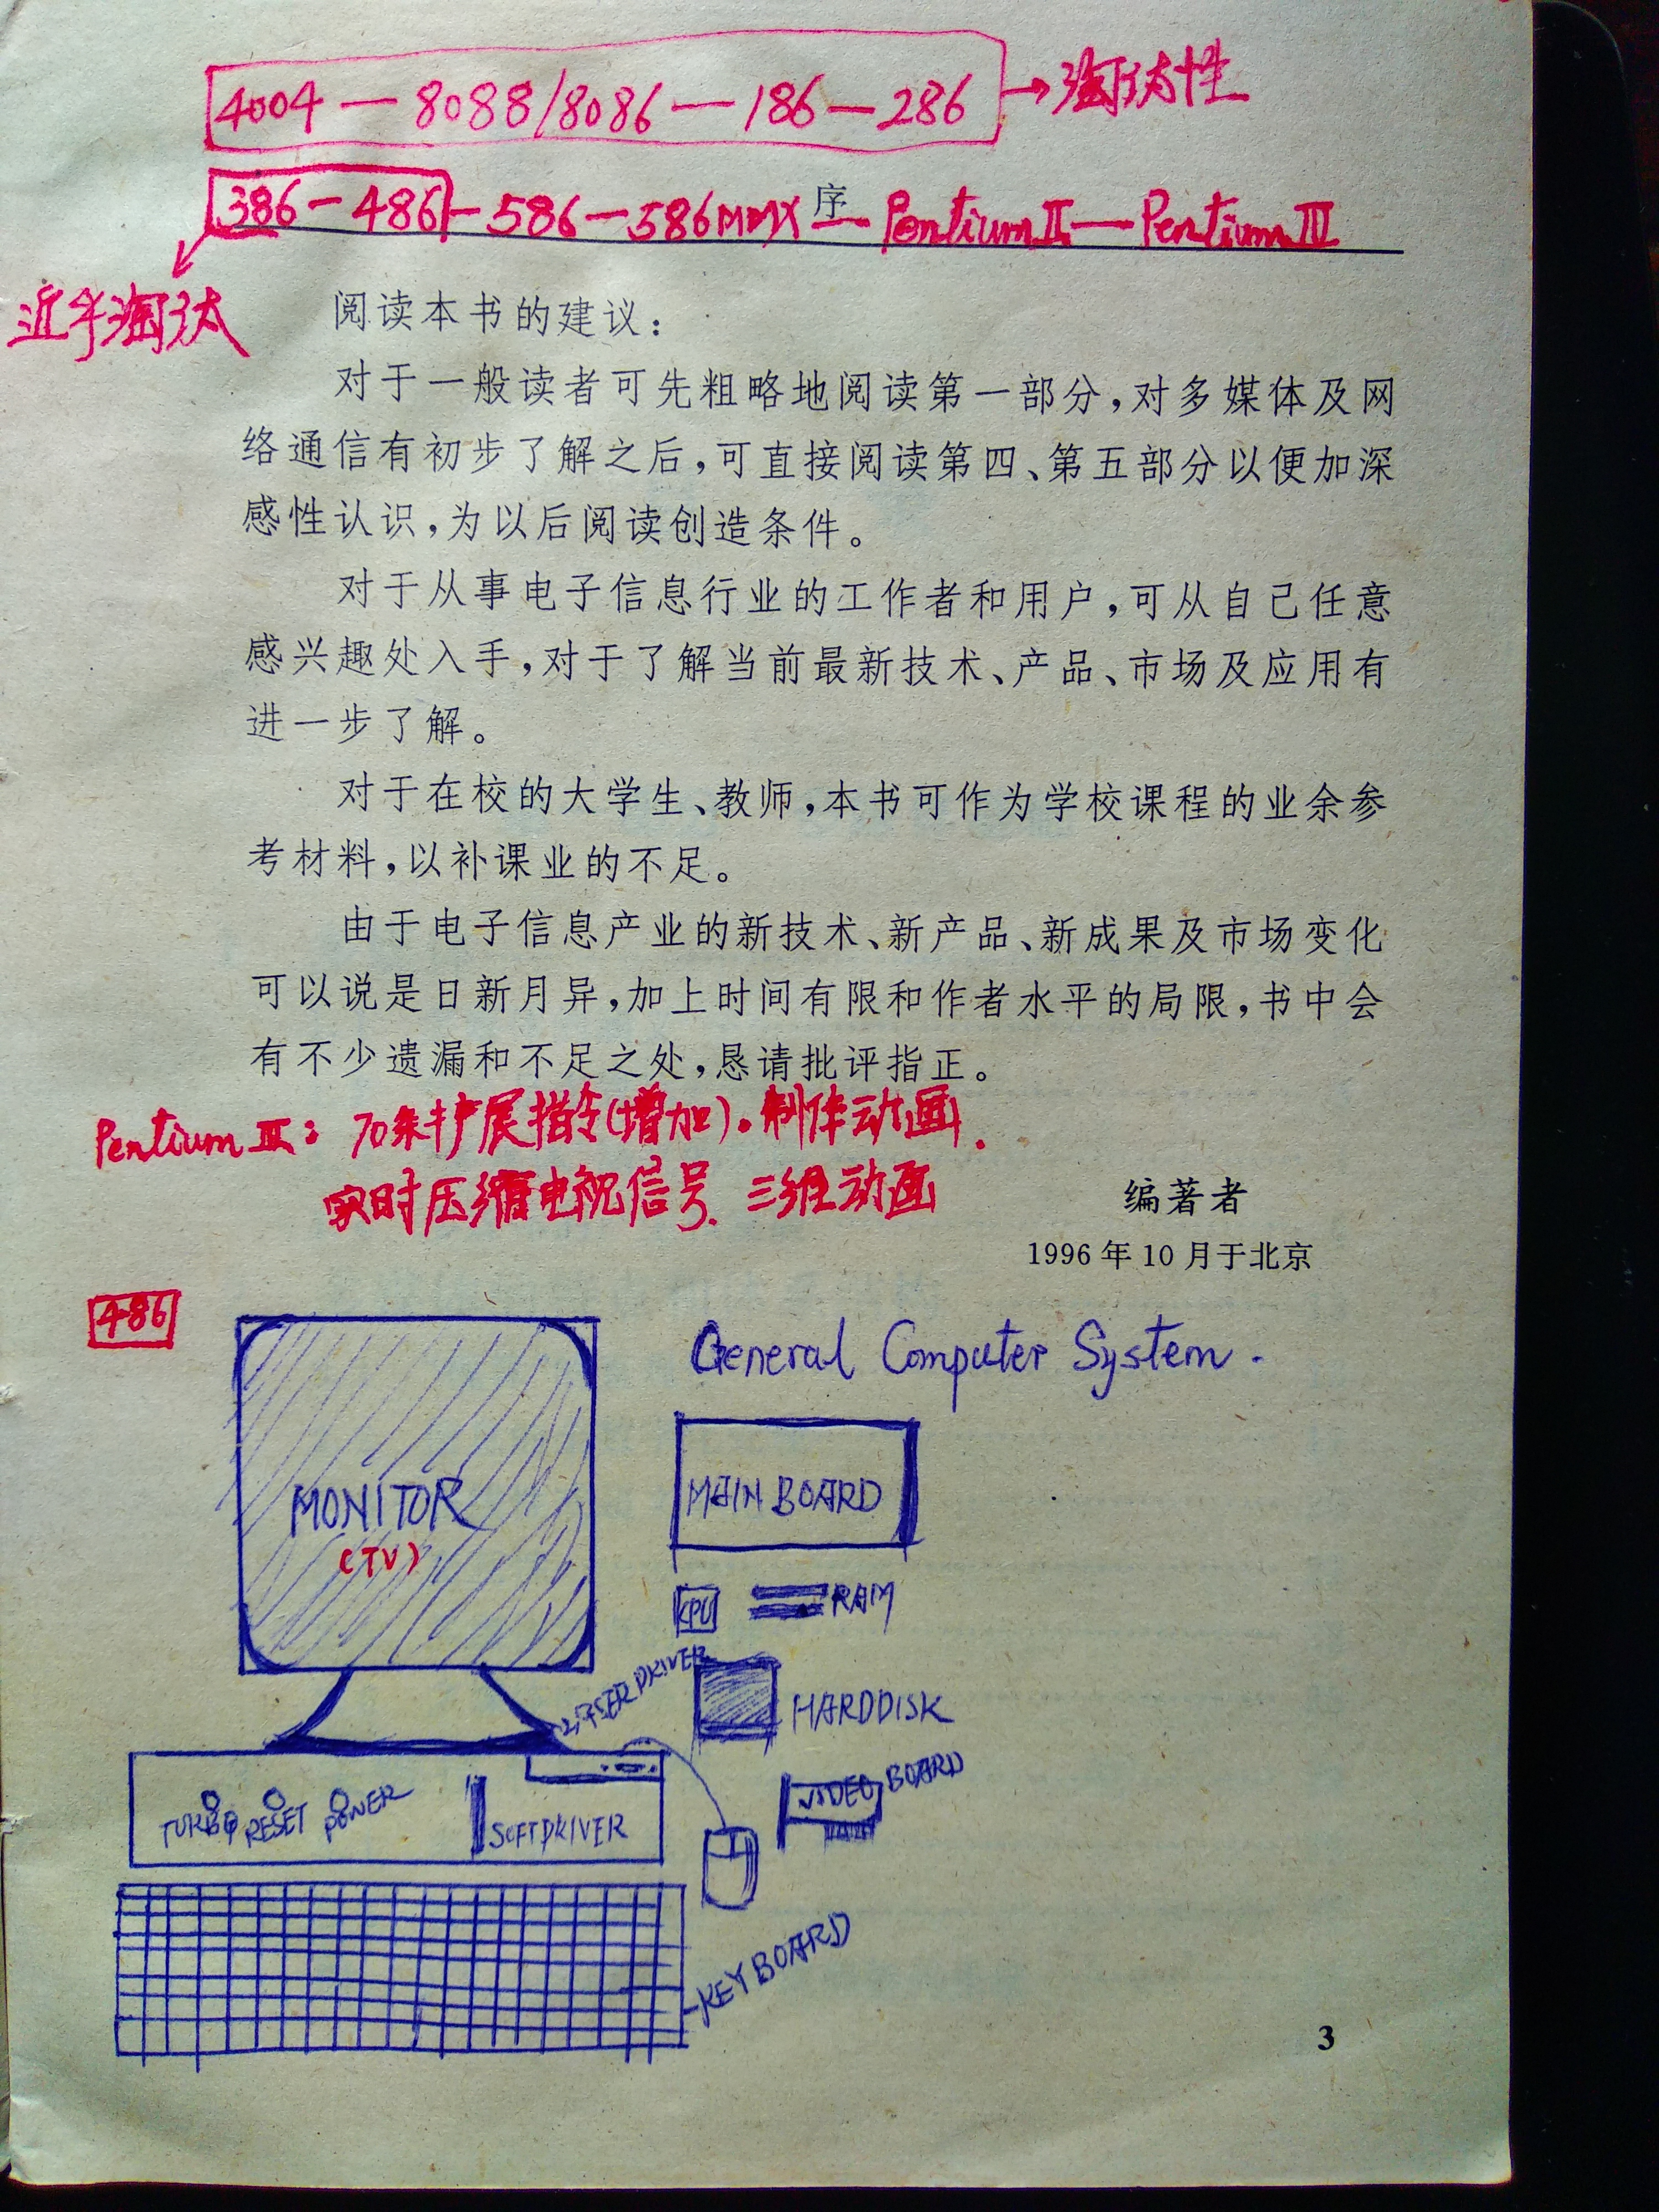 4004 — 8088/8086 — 186 — 286 → 淘汰性
386 — 486 — 586 — 586MMX — Pentium II — Pentium III
序
近乎淘汰
阅读本书的建议：
对于一般读者可先粗略地阅读第一部分，对多媒体及网
络通信有初步了解之后，可直接阅读第四、第五部分以便加深
感性认识，为以后阅读创造条件。
对于从事电子信息行业的工作者和用户，可从自己任意
感兴趣处入手，对于了解当前最新技术、产品、市场及应用有
进一步了解。
对于在校的大学生、教师，本书可作为学校课程的业余参
考材料，以补课业的不足。
由于电子信息产业的新技术、新产品、新成果及市场变化
可以说是日新月异，加上时间有限和作者水平的局限，书中会
有不少遗漏和不足之处，恳请批评指正。
Pentium III: 70条扩展指令(增加)。制作动画.
实时压缩电视信号. 三维动画
编著者
1996年10月于北京
486
General Computer System.
MONITOR
(TV)
MAIN BOARD
CPU
RAM
LASER DRIVER
HARDDISK
VIDEO BOARD
TURBO RESET POWER
SOFTDRIVER
KEYBOARD
3